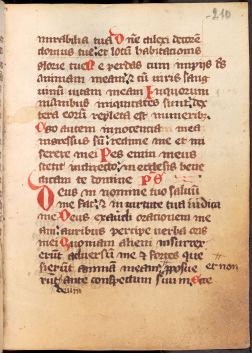 -210
mirabilia tua Dne dilexi decorem
domus tue: et locū habitationis
glorie tue Ne perdas cum impijs ds
animam meam: et cū viris sang
uinū vitam meam In quorum
manibus iniquitates sunt: dex
tera eorū repleta est muneribz
Ego autem in nocentia mea
ingressus sū: redime me et mi
serere mei Pes enim meus
stetit in directo: in ecclesiis bene
dicam te domine ps
Deus in nomine tuo saluū
me fac: et in virtute tua iudica
me Deus exaudi orationem me
am: auribus percipe verba oris
mei Quoniam alieni insurrex
erūt aduersū me et fortes que
sierūt animā meam: et non
pposue
rūt deum ante conspectum suū Ecce